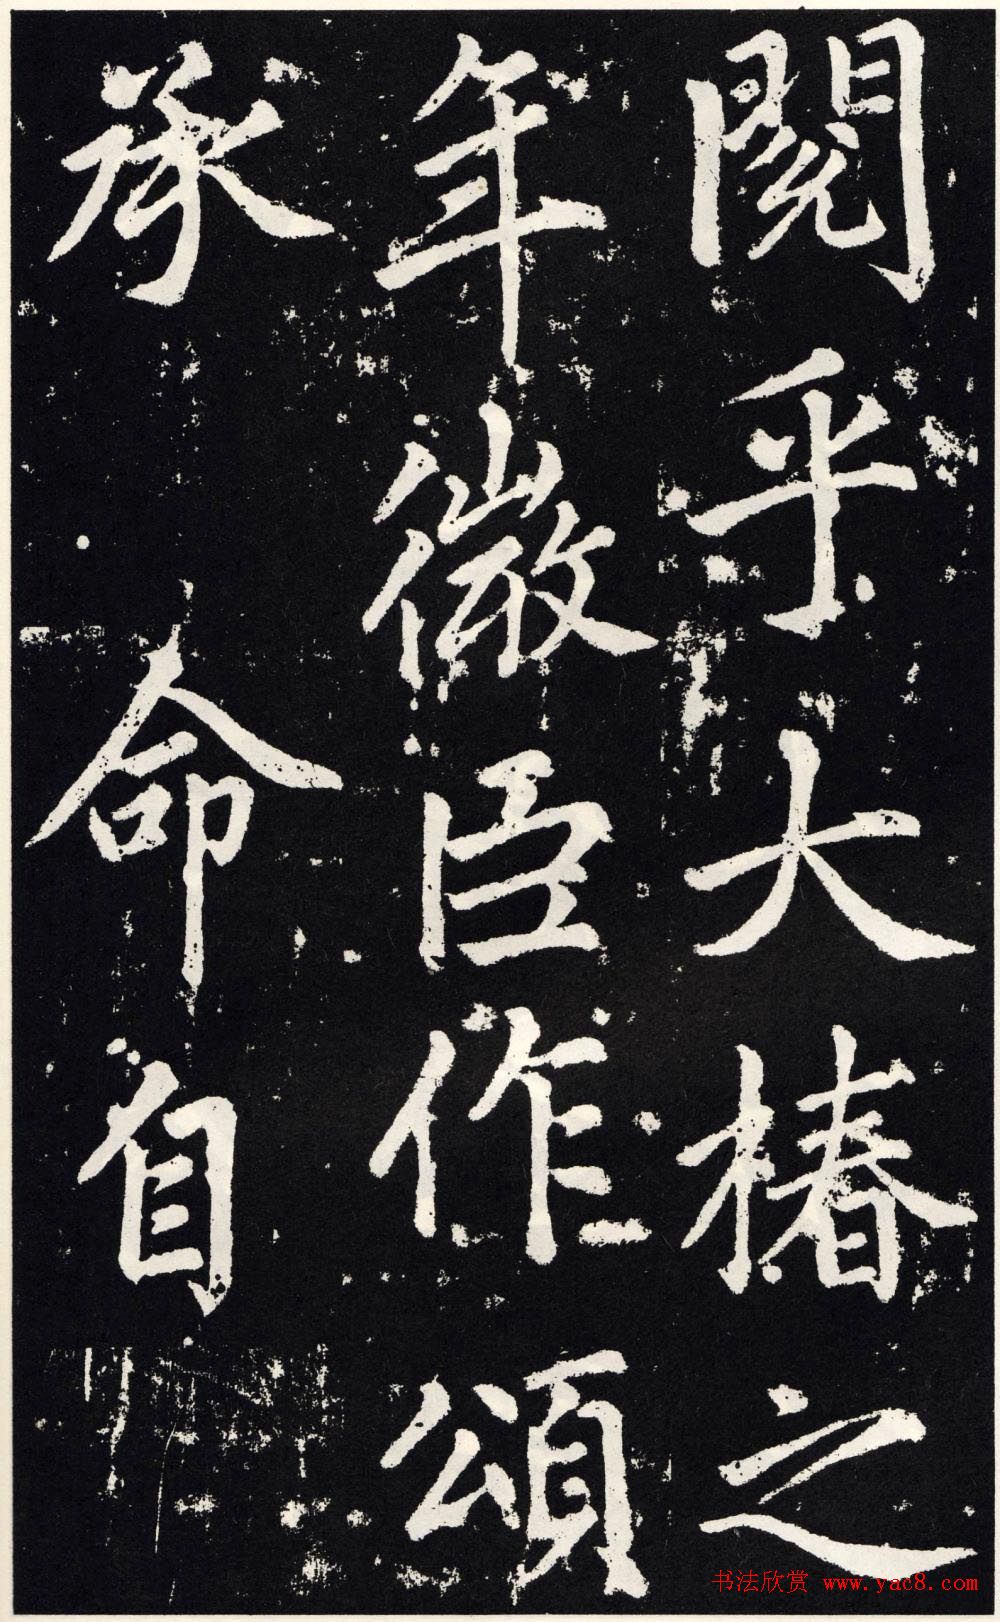 閱乎大椿之
年微臣作頌
承命自
书法欣赏 www.yac8.com